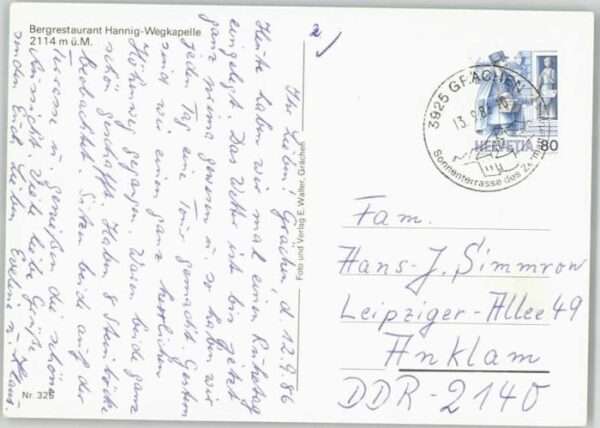 Bergrestaurant Hannig-Wegkapelle
2114 m ü.M.
2
Ihr Lieben! Grächen, d. 12.9.86
Heute haben wir mal einen Ruhetag
eingelegt. Das Wetter ist bis jetzt
ganz prima gewesen u. so haben wir
jeden Tag eine Tour gemacht. Gestern
sind wir einen ganz herrlichen
Höhenweg gegangen. Waren beide ganz
schön geschafft. Haben 8 Steinböcke
beobachtet. Sitzen beide auf der
u. genießen die schöne
Viele liebe Grüße
senden Euch Lieben Eveline u. Klaus
Nr. 325
Foto und Verlag E. Walter, Grächen
3925 GRÄCHEN
13.9.86
Sonnenterrasse des Zermatt
HELVETIA 80
Fam.
Hans-J. Simmrow
Leipziger-Allee 49
Anklam
DDR-2140